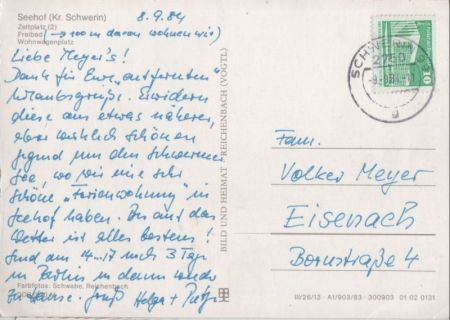 Seehof (Kr. Schwerin)
Zeltplatz (2)
Freibad (→ 100m davon wohnen wir)
Wohnwagenplatz
8.9.84
Liebe Meyer's!
Dank für Eure „entfernten"
Urlaubsgrüße. Erwidern
diese aus etwas näheren,
aber wirklich schönen
Gegend um den Schweriner
See, wo wir eine sehr
schöne „Ferienwohnung" in
Seehof haben. Bis auf das
Wetter ist alles bestens!
Sind am 14.-17. noch 3 Tage
in Berlin u. dann wieder
zu Hause. Gruß Helga +
Farbfotos: Schwabe, Reichenbach
BILD UND HEIMAT REICHENBACH (VOGTL)
SCHWERIN
2760
10
Fam.
Volker Meyer
Eisenach
Bornstraße 4
III/26/13 · A1/903/83 · 300903 01 02 0131